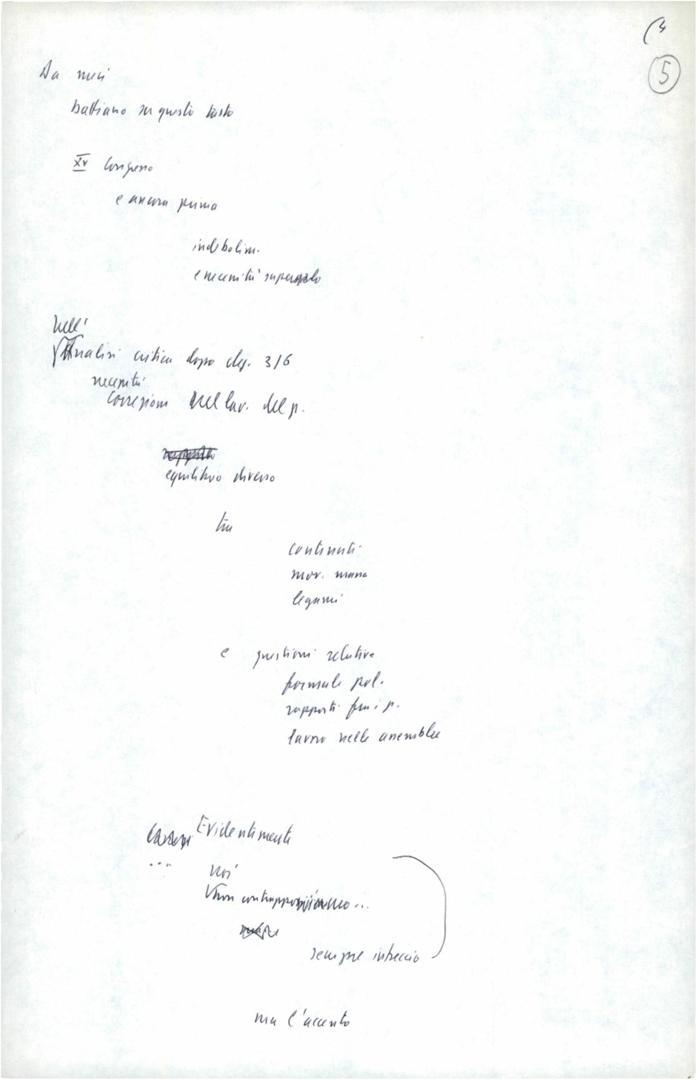 5
Da mesi
battiamo su questo tasto
XV Congresso
e ancora prima
indebolim.
e necessità superarlo
Nell'
Analisi critica dopo elez. 3/6
necessità
correzioni nel lav. del p.
equilibrio diverso
tra
contenuti
mov. massa
legami
e questioni relative
formule pol.
rapporti fra i p.
lavoro nelle assemblee
Evidentemente
...
noi
non contrapponiamo...
sempre intreccio
ma l'accento